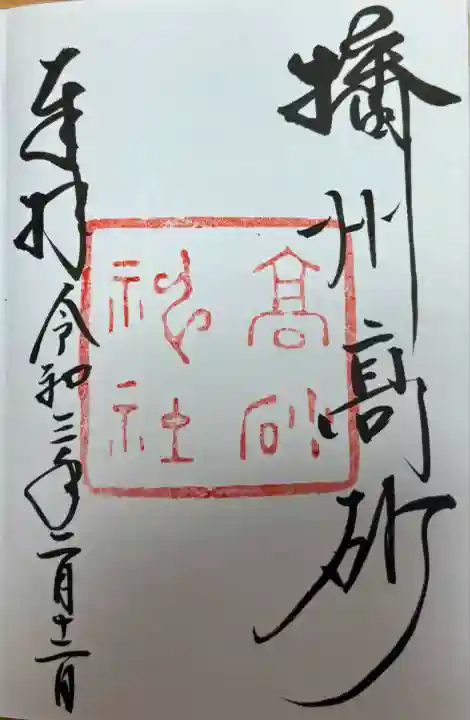 播州高砂
高砂
神社
奉拝 令和三年二月十二日